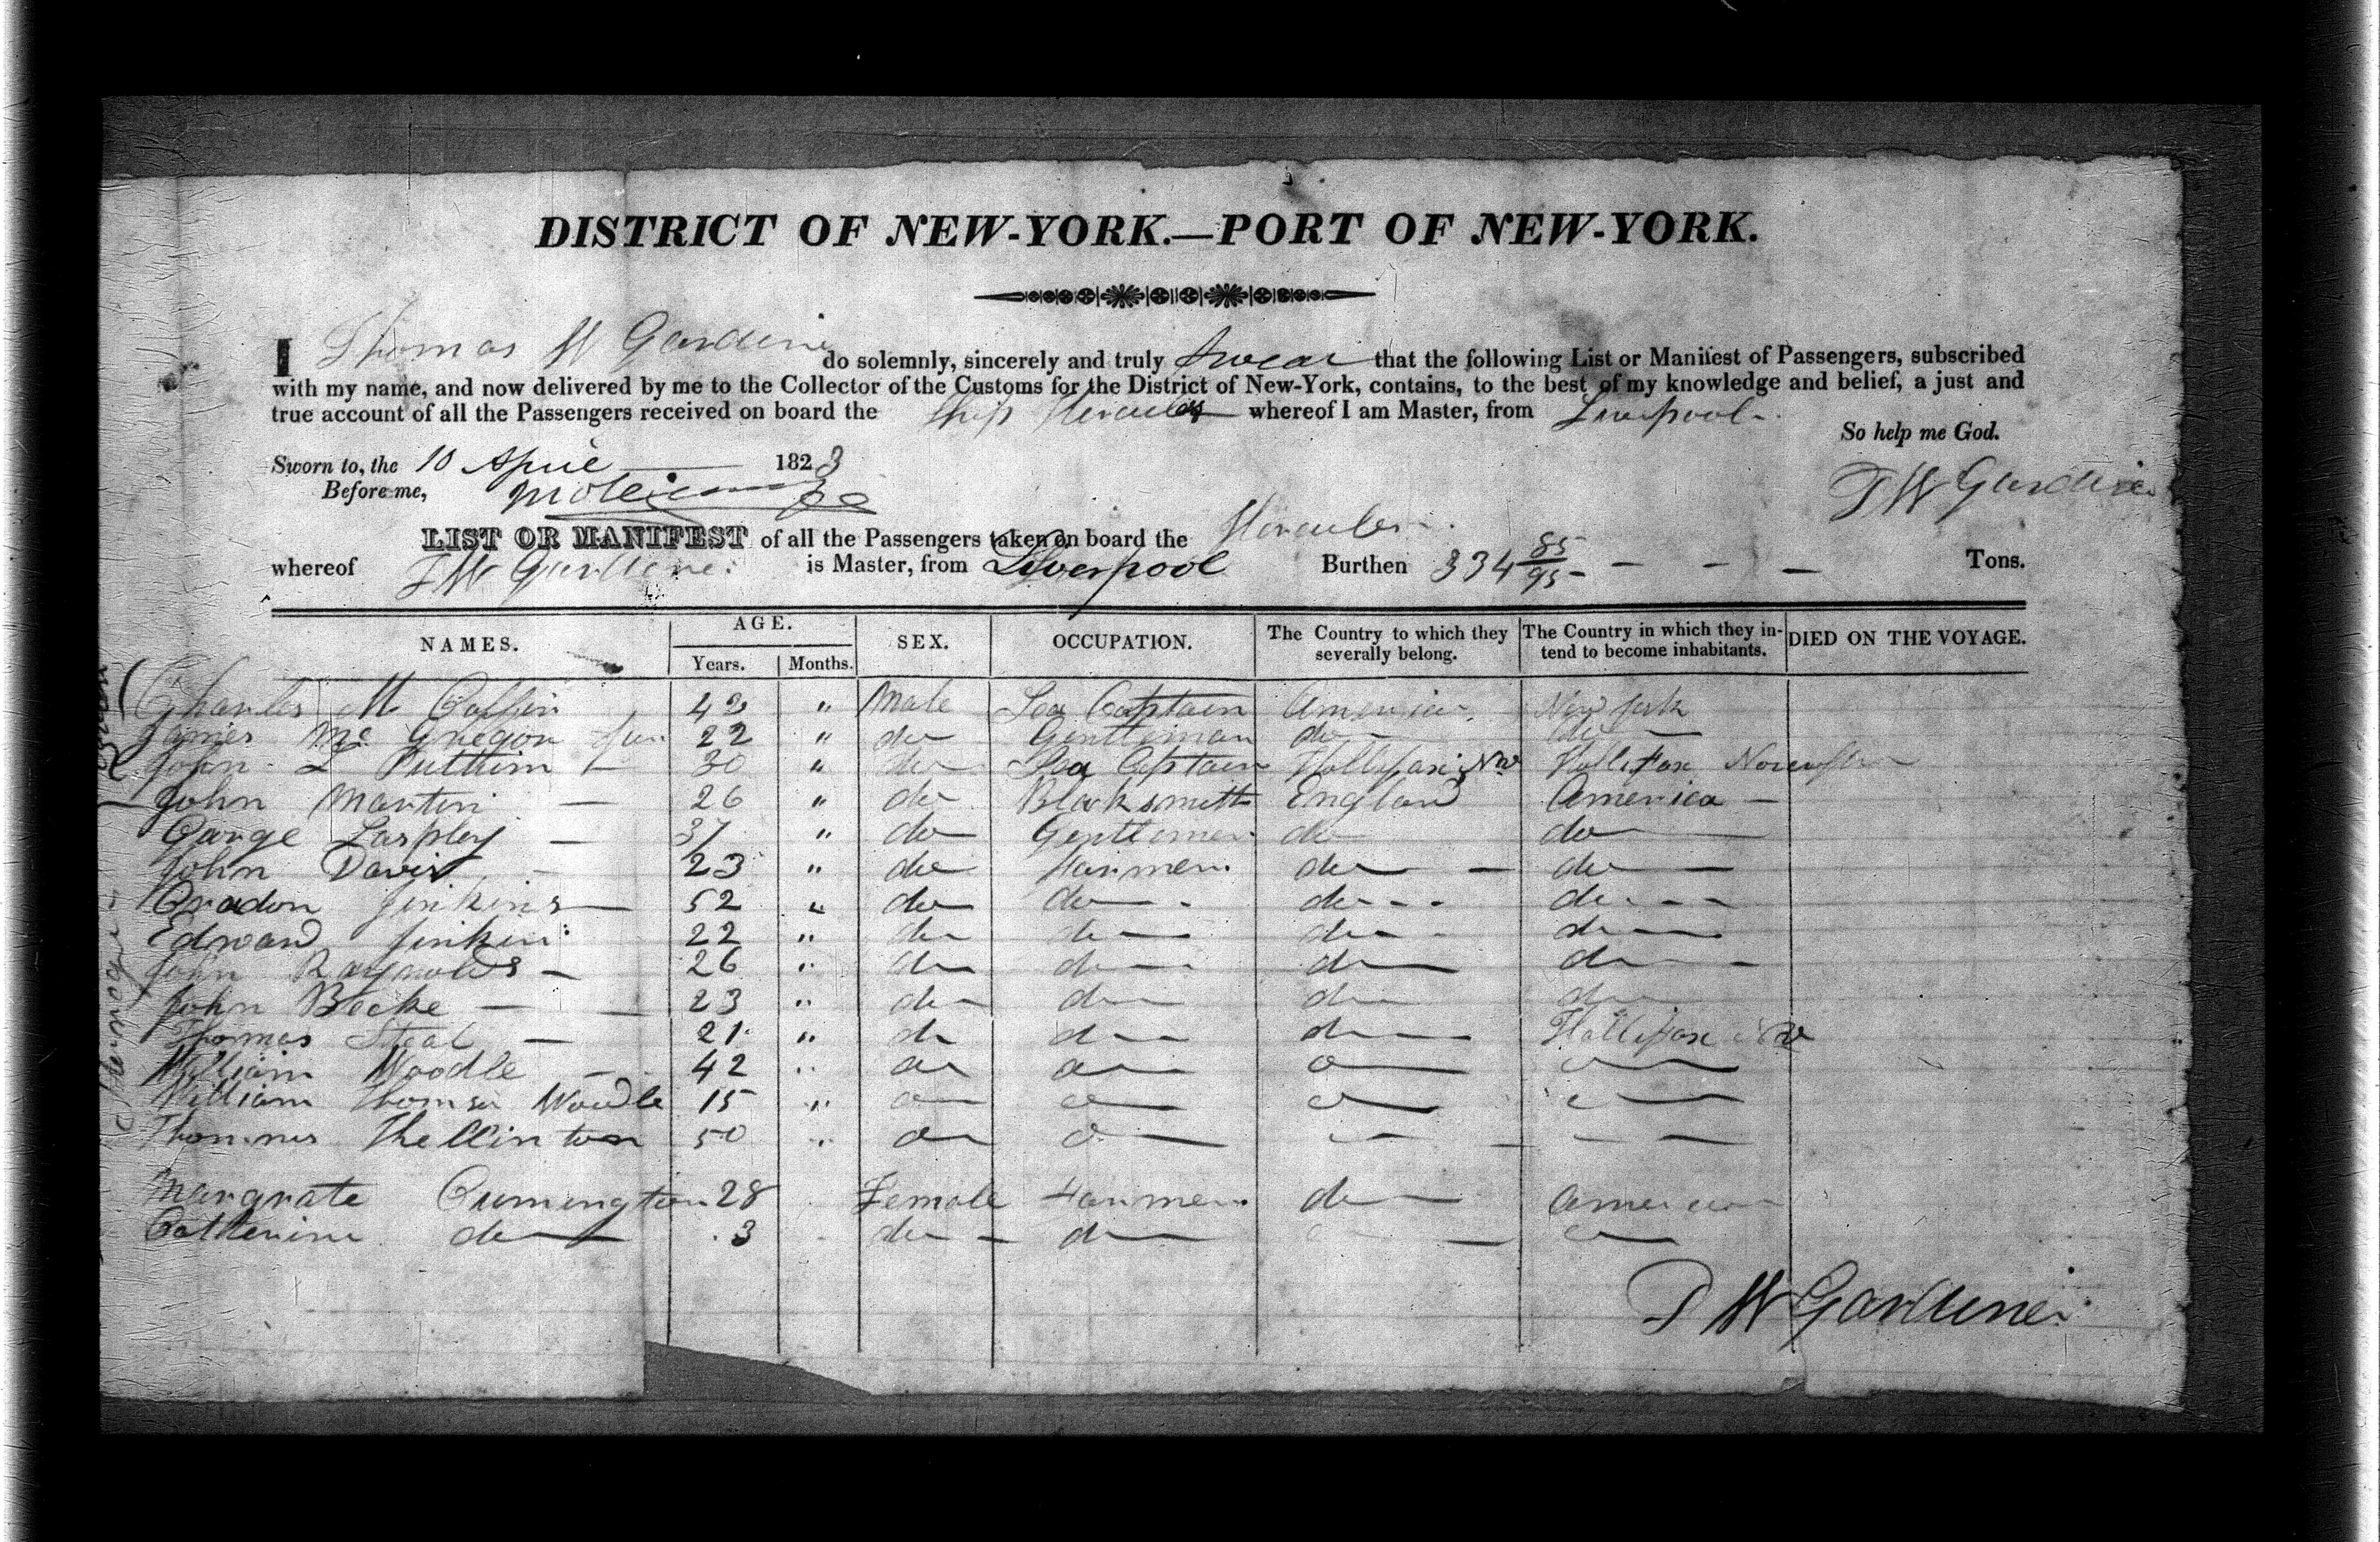 DISTRICT OF NEW-YORK.—PORT OF NEW-YORK.
I Thomas W Gardiner do solemnly, sincerely and truly swear that the following List or Manifest of Passengers, subscribed
with my name, and now delivered by me to the Collector of the Customs for the District of New-York, contains, to the best of my knowledge and belief, a just and
true account of all the Passengers received on board the Ship Hercules whereof I am Master, from Liverpool
So help me God.
Sworn to, the 10 April 1823
Before me,
T W Gardiner
LIST OR MANIFEST of all the Passengers taken on board the Hercules
whereof T W Gardiner is Master, from Liverpool Burthen 334 85/95 Tons.
NAMES. AGE. Years. Months. SEX. OCCUPATION. The Country to which they severally belong. The Country in which they intend to become inhabitants. DIED ON THE VOYAGE.
Charles M Coffin 42 " Male Sea Captain America New York
James Mc Gregor Jun 22 " do Gentleman do do
John L 30 " do Sea Captain Hallifax Hallifax
John Martin — 26 " do Blacksmith England America —
George — 37 " do Gentlemen do do
John Davis 23 " do Farmer do — do —
Jinkins 52 " do do do do
Edward Jinkin 22 " do do do do
John Raynolds — 26 " do do do do
John Becke — 23 " do do do do
Thomas Steal — 21 " do do do Hallifax
William Woodle — 42 " do do
William Woodle 15 "
Thomas 50 "
Margrate Cumington 28 Female Farmer do America
Catherine do 3 do do
T W Gardiner
Steerage